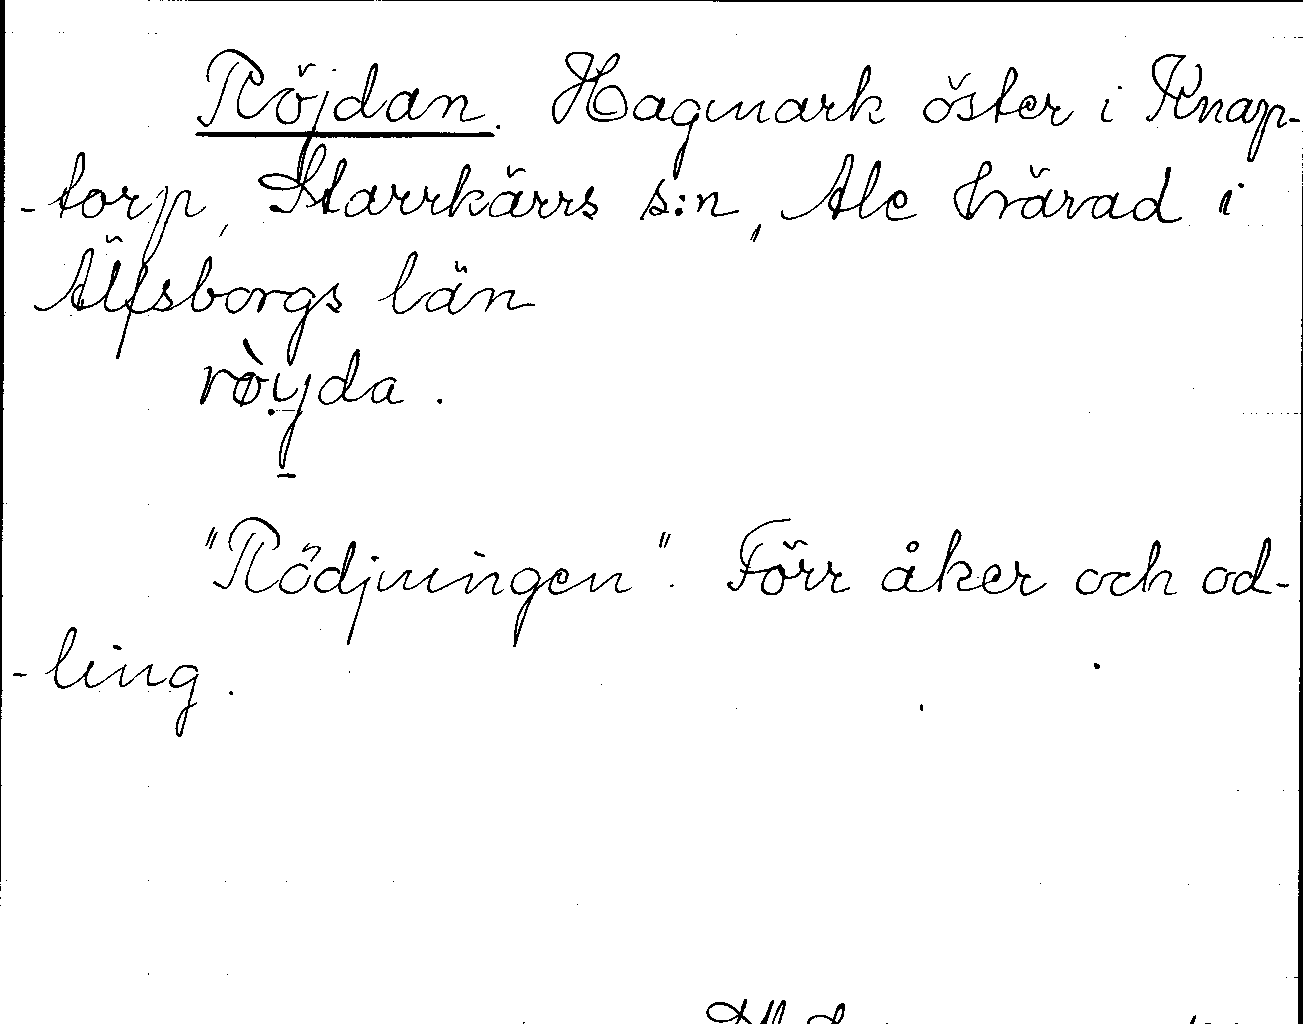 Röjdan. Hagmark öster i Knap-
-torp, Starrkärrs s:n, Ale härad i
Älfsborgs län
rò̤y̱da.
"Rödjningen". Förr åker och od-
-ling.